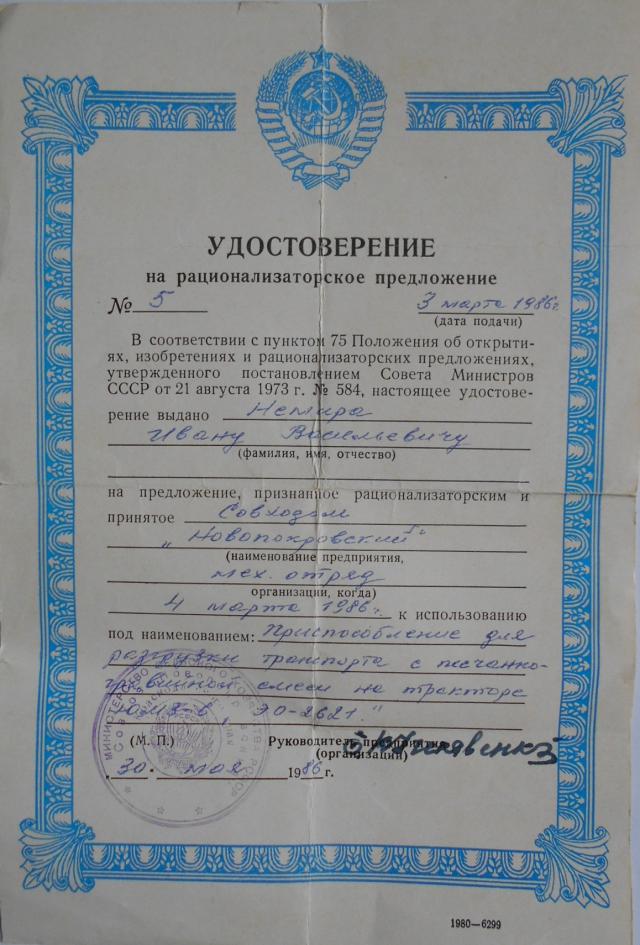 УДОСТОВЕРЕНИЕ
на рационализаторское предложение
№ 5 3 марта 1986г.
(дата подачи)
В соответствии с пунктом 75 Положения об открыти-
ях, изобретениях и рационализаторских предложениях,
утвержденного постановлением Совета Министров
СССР от 21 августа 1973 г. № 584, настоящее удостове-
рение выдано Немира
Ивану Васильевичу
(фамилия, имя, отчество)
на предложение, признанное рационализаторским и
принятое Совхозом
„Новопокровский"
(наименование предприятия,
мех. отряд
организации, когда)
4 марта 1986г. к использованию
под наименованием: „Приспособление для
разгрузки транспорта с песчанно-
гравийной смеси на тракторе
ЮМЗ-6, ЭО-2621."
(М. П.) Руководитель предприятия
(организации)
„30" мая 1986 г.
1980—6299